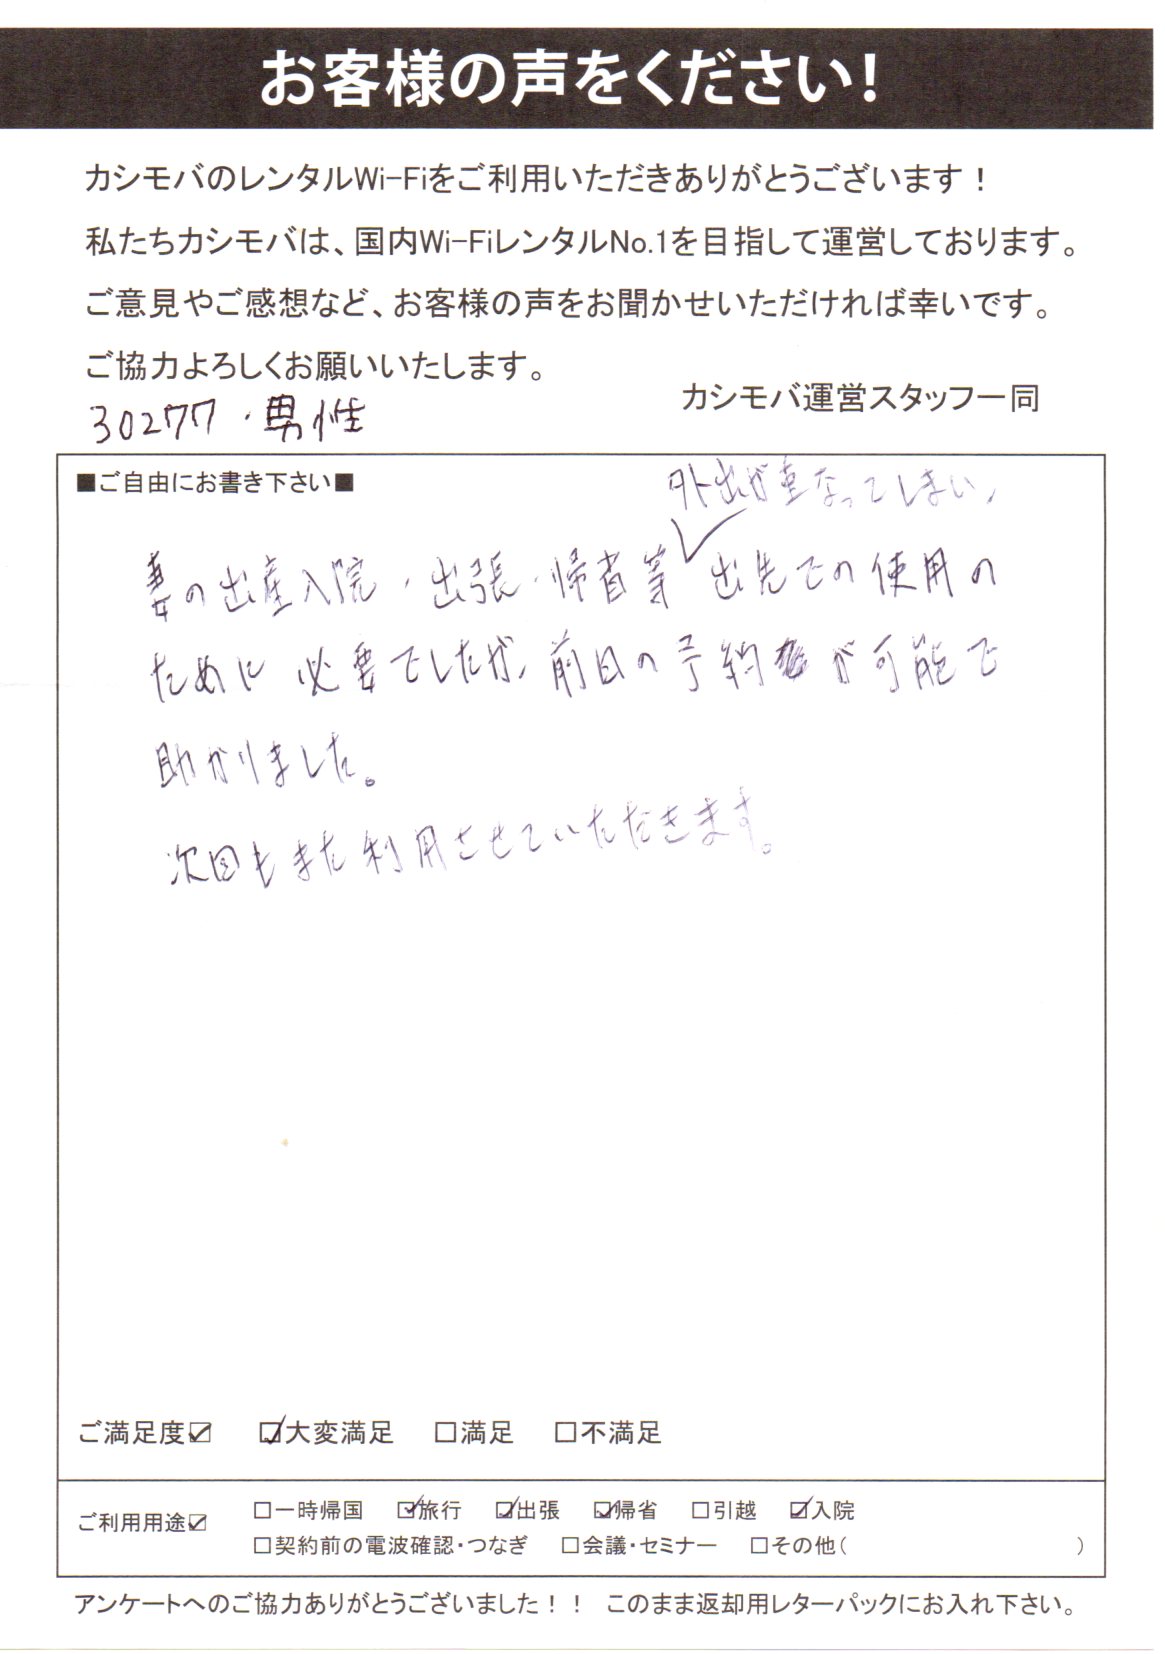 お客様の声をください！
カシモバのレンタルWi-Fiをご利用いただきありがとうございます！
私たちカシモバは、国内Wi-FiレンタルNo.1を目指して運営しております。
ご意見やご感想など、お客様の声をお聞かせいただければ幸いです。
ご協力よろしくお願いいたします。
カシモバ運営スタッフ一同
30277・男性
■ご自由にお書き下さい■
外出が重なってしまい、
妻の出産入院・出張・帰省等✓出先での使用の
ために必要でしたが、前日の予約が可能で
助かりました。
次回もまた利用させていただきます。
ご満足度☑ ☑大変満足 □満足 □不満足
ご利用用途☑ □一時帰国 ☑旅行 ☑出張 ☑帰省 □引越 ☑入院
□契約前の電波確認・つなぎ □会議・セミナー □その他（ ）
アンケートへのご協力ありがとうございました！！ このまま返却用レターパックにお入れ下さい。